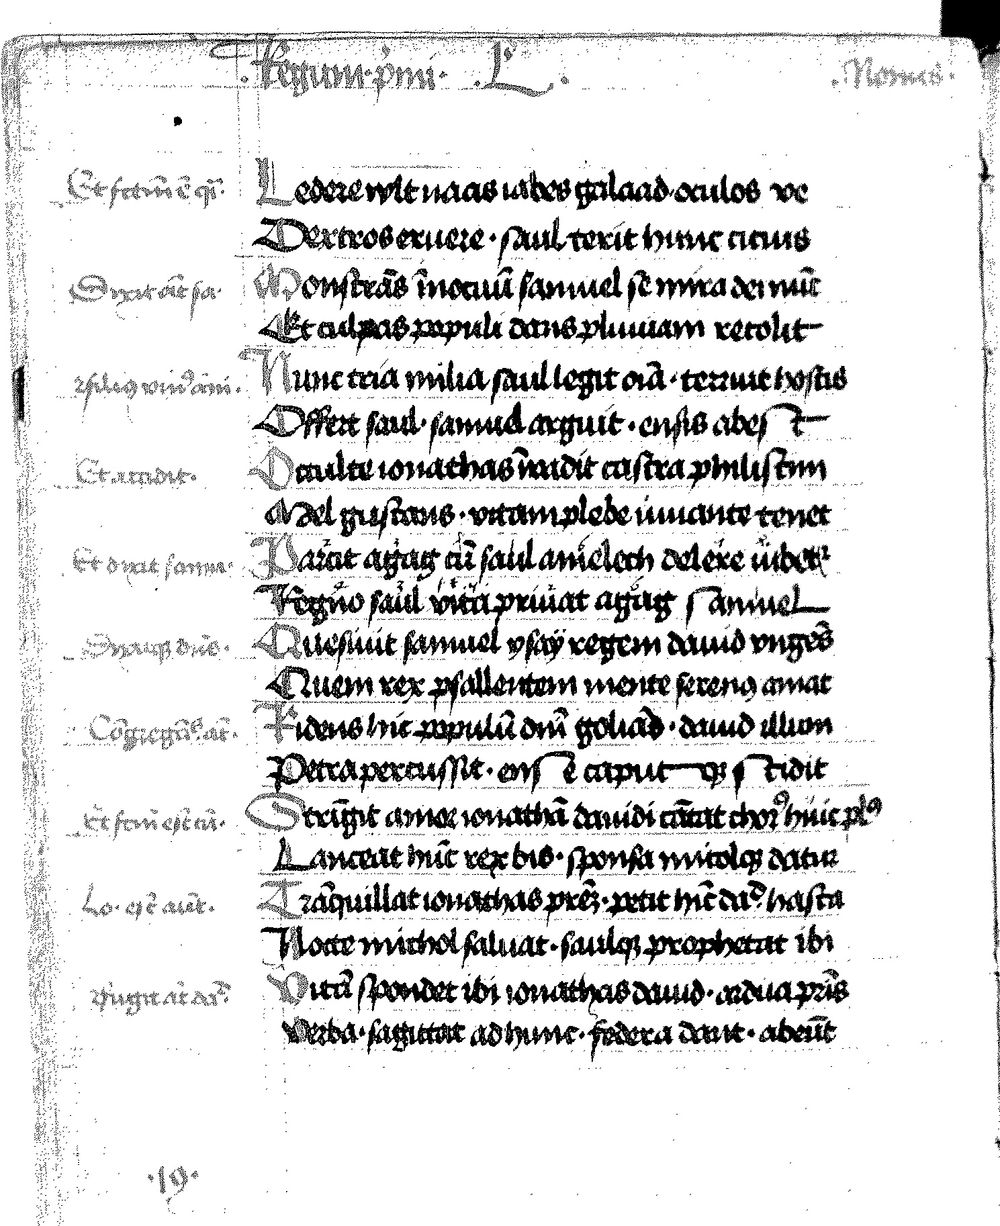 Regum · p̄mi · L · Nonus ·
Et factū ē q̄ı ·
Ledere wlt naas iabes galaad · oculos ve
Dextros eruere · saul terit hunc cicius
Dixit āt sa ·
Monstrās īnocuū samuel se mira dei nūc
Et culpas populi dans pluuiam recolit
Nunc tria milia saul legit oīa · terruit hostis
Offert saul · samuel arguit · ensis abest
Et accidit ·
Occulte ionathas īuadit castra philistim
Mel gustans · vitam plebe iuuante tenet
Et dixit samu ·
Parcit agag cū saul amelech delere iubetr
Regno saul vita priuat agag samuel
Dixitqꝫ dn̄s ·
Quesiuit samuel ysaÿ regem dauid vngēs
Quem rex psallentem mente serenꝰ amat
Cōgregātes āt ·
Fidens hic populū dm̄ goliad · dauid illum
Petra percussit · ense caputqꝫ scidit
Et fctm̄ est cū ·
Strīgit amor ionathā dauidi cātat chorꝰ huic plꝰ
Lanceat hūc rex bis · sponsa micolqꝫ datur
Lo · est aut̄ ·
Trāquillat ionathas prēꝫ · petit hīc dad hasta
Nocte michol saluat · saulqꝫ prophetat ibi
Fugit āt dad
Vitā spondet ibi ionathas dauid · ardua pr̄is
Verba · sagittat ad hunc · federa dant · abeūt
· 19 ·